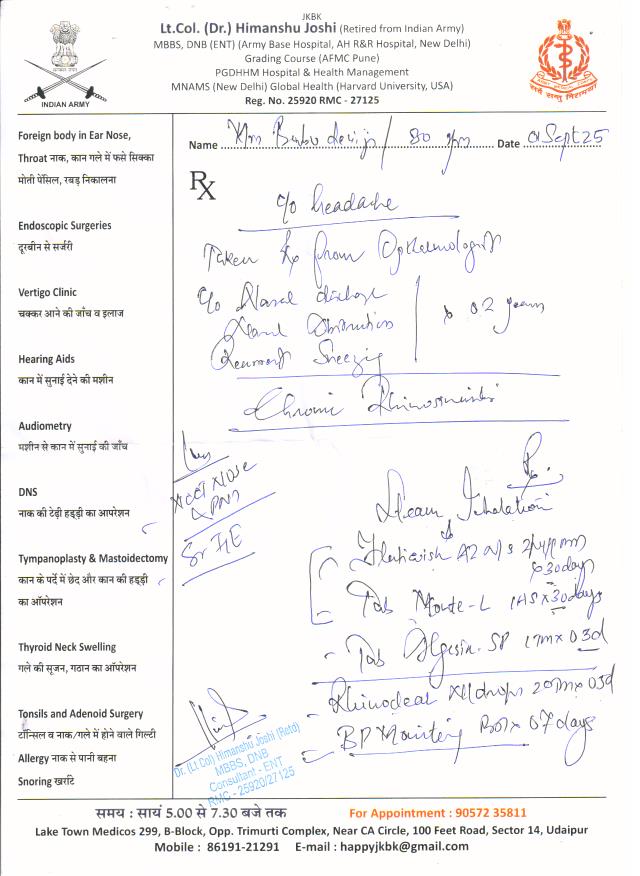 JKBK
Lt.Col. (Dr.) Himanshu Joshi (Retired from Indian Army)
MBBS, DNB (ENT) (Army Base Hospital, AH R&R Hospital, New Delhi)
Grading Course (AFMC Pune)
PGDHHM Hospital & Health Management
MNAMS (New Delhi) Global Health (Harvard University, USA)
Reg. No. 25920 RMC - 27125
INDIAN ARMY
Name Mrs devi ji / 80 Date 01 Sept 25
Rx
Foreign body in Ear Nose,
Throat नाक, कान गले में फसे सिक्का
मोती पेंसिल, रबड़ निकालना
Endoscopic Surgeries
दूरबीन से सर्जरी
Vertigo Clinic
चक्कर आने की जाँच व इलाज
Hearing Aids
कान में सुनाई देने की मशीन
Audiometry
मशीन से कान में सुनाई की जाँच
DNS
नाक की टेड़ी हड्डी का आपरेशन
Tympanoplasty & Mastoidectomy
कान के पर्दे में छेद और कान की हड्डी
का ऑपरेशन
Thyroid Neck Swelling
गले की सूजन, गठान का ऑपरेशन
Tonsils and Adenoid Surgery
टॉन्सिल व नाक/गले में होने वाले गिल्टी
Allergy नाक से पानी बहना
Snoring खर्राटे
c/o headache
Taken Rx from
c/o Nasal discharge
Nasal Obstruction x 02 years
Recurrent Sneezing
Chronic Rhinosinusitis
NCCT NOSE
& PNS
Sr IgE
Steam Inhalation
AZ N/S
x 30 days
Tab Monte-L 1 HS x 30 days
Tab Algesin-SP x 03d
drops x 05d
BP x 07 days
Dr. (Lt Col) Himanshu Joshi (Retd)
MBBS, DNB
Consultant - ENT
RMC - 25920/27125
समय : सायं 5.00 से 7.30 बजे तक For Appointment : 90572 35811
Lake Town Medicos 299, B-Block, Opp. Trimurti Complex, Near CA Circle, 100 Feet Road, Sector 14, Udaipur
Mobile : 86191-21291 E-mail : happyjkbk@gmail.com